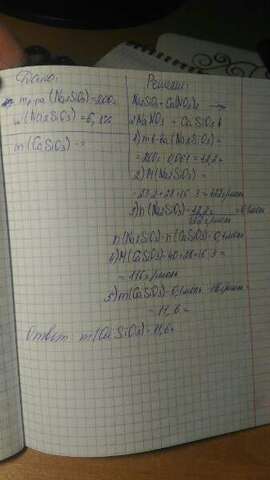 Дано:
m р-ра (Na2SiO3) = 200г
w (Na2SiO3) = 6,1%
m (CaSiO3) - ?
Решение:
Na2SiO3 + Ca(NO3)2 →
2NaNO3 + CaSiO3↓
1) m в-ва (Na2SiO3) =
= 200 · 0,061 = 12,2г
2) M (Na2SiO3) =
= 23·2 + 28 + 16·3 = 122г/моль
3) n (Na2SiO3) = 12,2г / 122г/моль = 0,1моль
n (Na2SiO3) = n (CaSiO3) = 0,1моль
M (CaSiO3) = 40 + 28 + 16·3 =
= 116г/моль
5) m (CaSiO3) = 0,1моль · 116г/моль
= 11,6г
Ответ: m (CaSiO3) = 11,6г